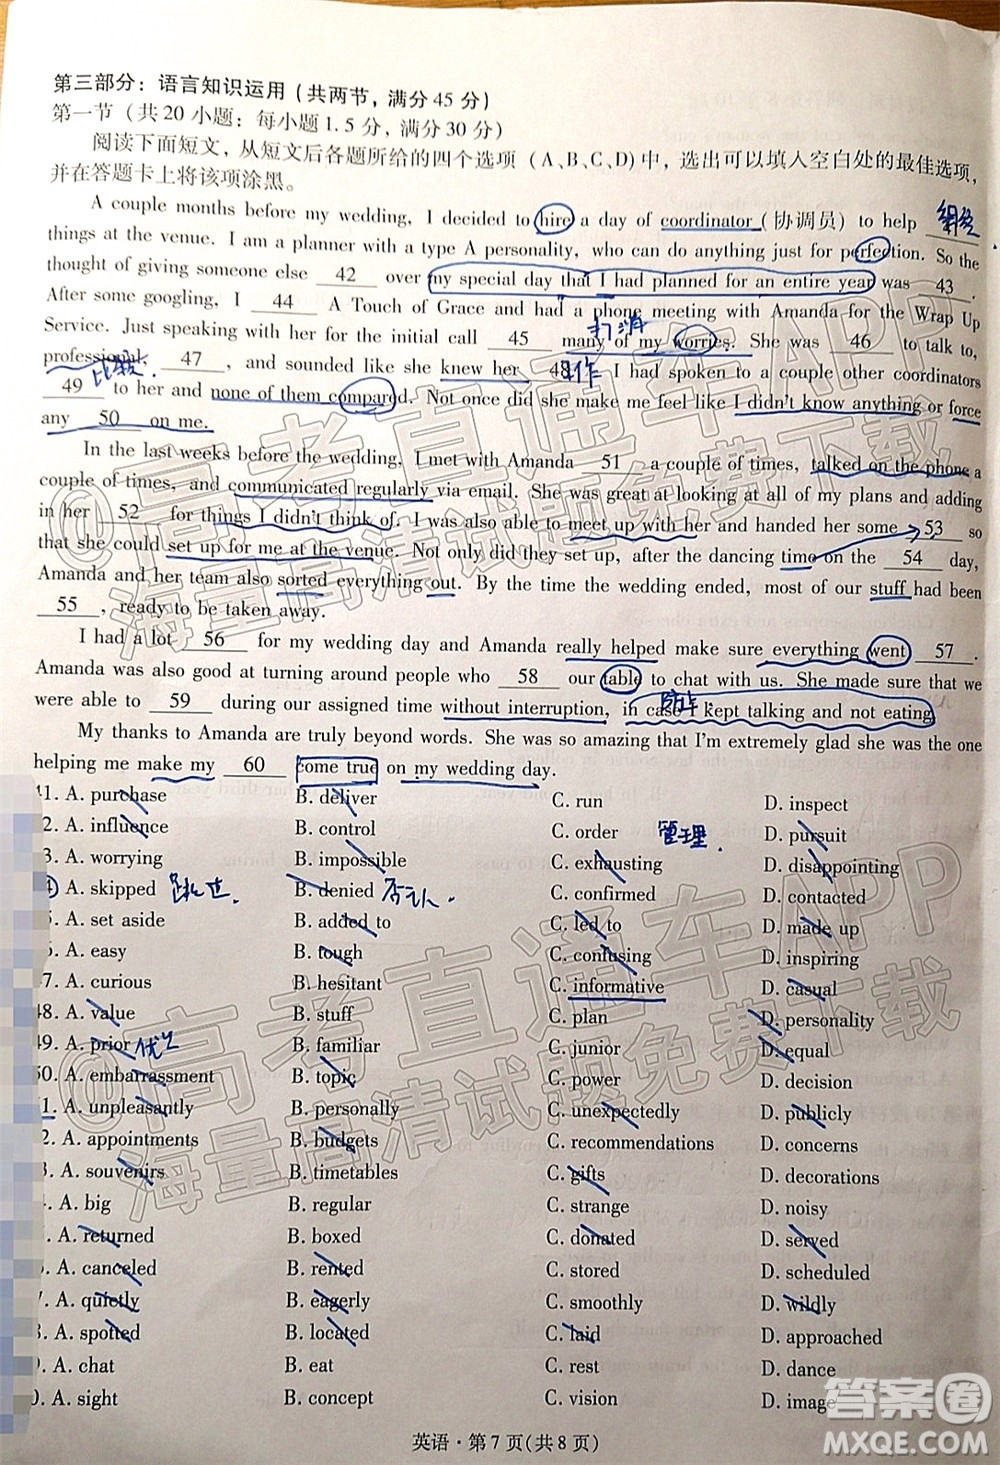 第三部分：语言知识运用（共两节，满分45分）
第一节（共20小题；每小题1.5分，满分30分）
阅读下面短文，从短文后各题所给的四个选项（A、B、C、D）中，选出可以填入空白处的最佳选项，
并在答题卡上将该项涂黑。
A couple months before my wedding, I decided to hire a day of coordinator（协调员）to help
things at the venue. I am a planner with a type A personality, who can do anything just for perfection. So the
thought of giving someone else 42 over my special day that I had planned for an entire year was 43 .
After some googling, I 44 A Touch of Grace and had a phone meeting with Amanda for the Wrap Up
打消
Service. Just speaking with her for the initial call 45 many of my worries. She was 46 to talk to,
professional, 47 , and sounded like she knew her 48 . I had spoken to a couple other coordinators
比较
工作
49 to her and none of them compared. Not once did she make me feel like I didn't know anything or force
any 50 on me.
In the last weeks before the wedding, I met with Amanda 51 a couple of times, talked on the phone a
couple of times, and communicated regularly via email. She was great at looking at all of my plans and adding
in her 52 for things I didn't think of. I was also able to meet up with her and handed her some 53 so
that she could set up for me at the venue. Not only did they set up, after the dancing time on the 54 day,
Amanda and her team also sorted everything out. By the time the wedding ended, most of our stuff had been
55 , ready to be taken away.
I had a lot 56 for my wedding day and Amanda really helped make sure everything went 57 .
Amanda was also good at turning around people who 58 our table to chat with us. She made sure that we
防止
were able to 59 during our assigned time without interruption, in case I kept talking and not eating.
My thanks to Amanda are truly beyond words. She was so amazing that I'm extremely glad she was the one
helping me make my 60 come true on my wedding day.
41. A. purchase B. deliver C. run D. inspect
2. A. influence B. control C. order 管理 D. pursuit
3. A. worrying B. impossible C. exhausting D. disappointing
4 A. skipped 跳过 B. denied 否认 C. confirmed D. contacted
5. A. set aside B. added to C. led to D. made up
6. A. easy B. tough C. confusing D. inspiring
47. A. curious B. hesitant C. informative D. casual
48. A. value B. stuff C. plan D. personality
49. A. prior 优先 B. familiar C. junior D. equal
50. A. embarrassment B. topic C. power D. decision
51. A. unpleasantly B. personally C. unexpectedly D. publicly
2. A. appointments B. budgets C. recommendations D. concerns
3. A. souvenirs B. timetables C. gifts D. details
4. A. big B. regular C. strange D. noisy
5. A. returned B. boxed C. donated D. served
6. A. canceled B. rented C. stored D. scheduled
7. A. quietly B. eagerly C. smoothly D. wildly
8. A. spotted B. located C. laid D. approached
9. A. chat B. eat C. rest D. dance
0. A. sight B. concept C. vision D. image
英语·第7页(共8页)
@高考直通车APP
海量高清试题免费下载
@高考直通车APP
海量高清试题免费下载
答案圈
MXQE.COM